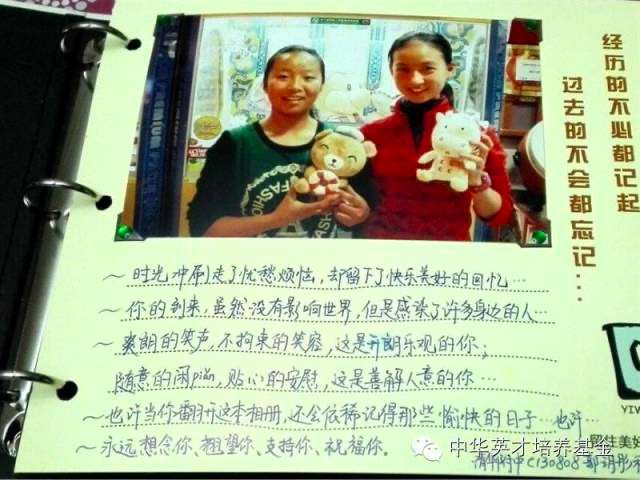 经历的不必都记起
过去的不会都忘记...
FASHION
~时光冲刷走了忧愁烦恼，却留下了快乐美好的回忆…
~你的到来，虽然没有影响世界，但是感染了许多身边的人…
~爽朗的笑声，不拘束的笑容，这是开朗乐观的你；
随意的闲pian，贴心的安慰，这是善解人意的你…
~也许当你翻开这本相册，还会依稀记得那些愉快的日子…也许…
~永远想念你、祖望你、支持你、祝福你。
YIW
留住美好
中华英才培养基金
清华附中C130808